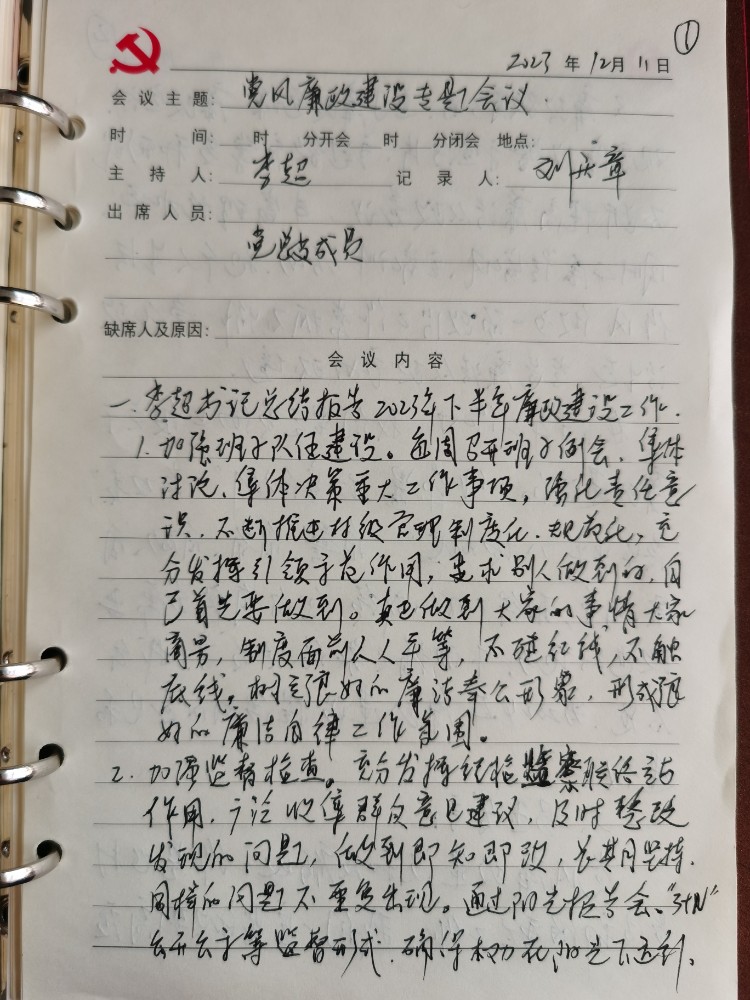 ①
2023 年 12月 11日
会议主题: 党风廉政建设专题会议.
时 间: 时 分开会 时 分闭会 地点:
主 持 人: 李超 记 录 人: 刘庆章
出席人员:
党总支成员
缺席人及原因:
会 议 内 容
一.李超书记总结报告2023年下半年廉政建设工作.
1.加强班子队伍建设。每周召开班子例会、集体
讨论、集体决策重大工作事项,强化责任意
识,不断推进村级管理制度化、规范化,充
分发挥引领示范作用,要求别人做到的,自
己首先要做到。真正做到大家的事情大家
商量,制度面前人人平等,不碰红线,不触
底线。树立良好的廉洁奉公形象,形成良
好的廉洁自律工作氛围。
2.加强监督检查。充分发挥纪检监察联络站
作用,广泛收集群众意见建议,及时整改
发现的问题,做到即知即改,长期坚持,
同样的问题不重复出现。通过阳光报告会、
公开公示等监督形式,确保权力在阳光下运行、